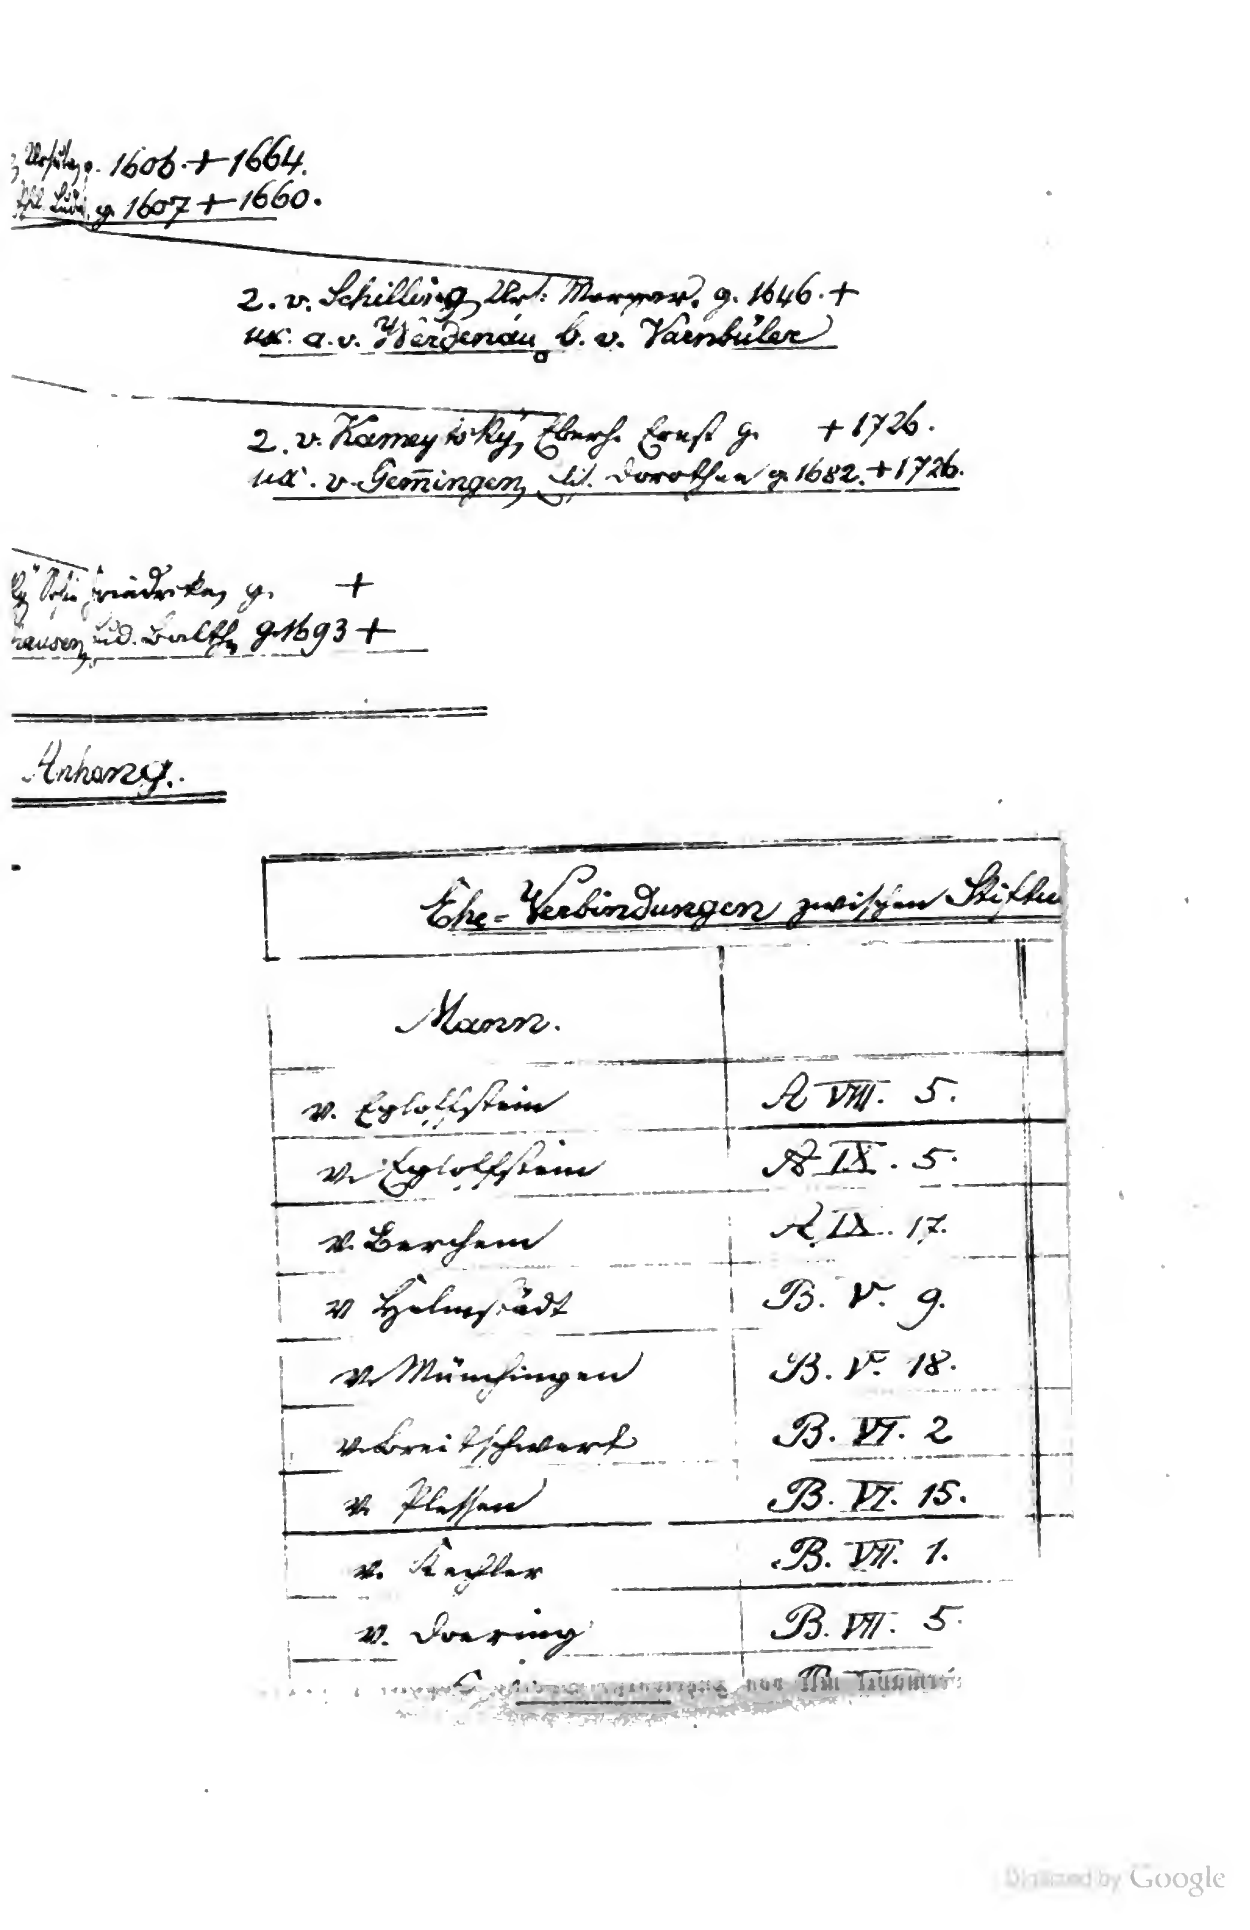 Ursula g. 1606. + 1664.
Lud. g. 1607 + 1660.
2. v. Schilling, Ur: Margar. g. 1646. +
ux. a. v. Werdenau, b. v. Varnbüler
2. v. Kameytsky, Eberh. Ernst g. + 1726.
ux. v. Gem̄ingen, Dorothea g. 1682. + 1726.
Sofie Friedrike, g. +
hausen, Balth. g. 1693 +
Anhang.
Ehe-Verbindungen zwischen Stiftu
Mann.
v. Egloffstein A VIII. 5.
v. Egloffstein A IX. 5.
v. Berchem A. IX. 17.
v Helmstädt B. V. 9.
v. Münchingen B. V. 18.
v. Breitschwert B. VI. 2
v. Plessen B. VI. 15.
v. Kechler B. VII. 1.
v. Doering B. VII. 5.
Digitized by Google